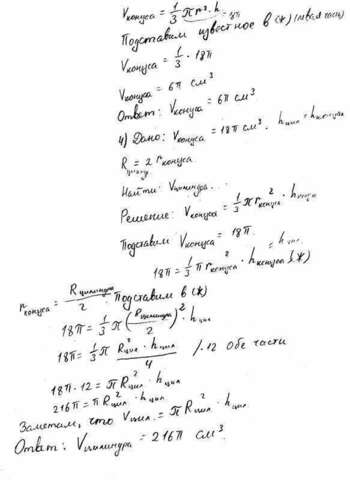 Vконуса = 1/3 πr²·h = 18π
Подставим известное в (*)
Vконуса = 1/3 · 18π
Vконуса = 6π см³
Ответ: Vконуса = 6π см³
4) Дано: Vконуса = 18π см³. hцил = hконуса
Rцилиндр = 2 rконуса
Найти: Vцилиндра.
Решение: Vконуса = 1/3 πrконуса² · hконуса
Подставим Vконуса = 18π. = hцил.
18π = 1/3 π rконуса² · hконуса (*)
rконуса = Rцилиндра/2 Подставим в (*)
18π = 1/3 π (Rцилиндра/2)² · hцил
18π = 1/3 π Rцил² · hцил/4 /·12 Обе части
18π · 12 = π Rцил² · hцил
216π = π Rцил² · hцил
Заметам, что Vцил. = π Rцил² · hцил
Ответ: Vцилиндра = 216π см³